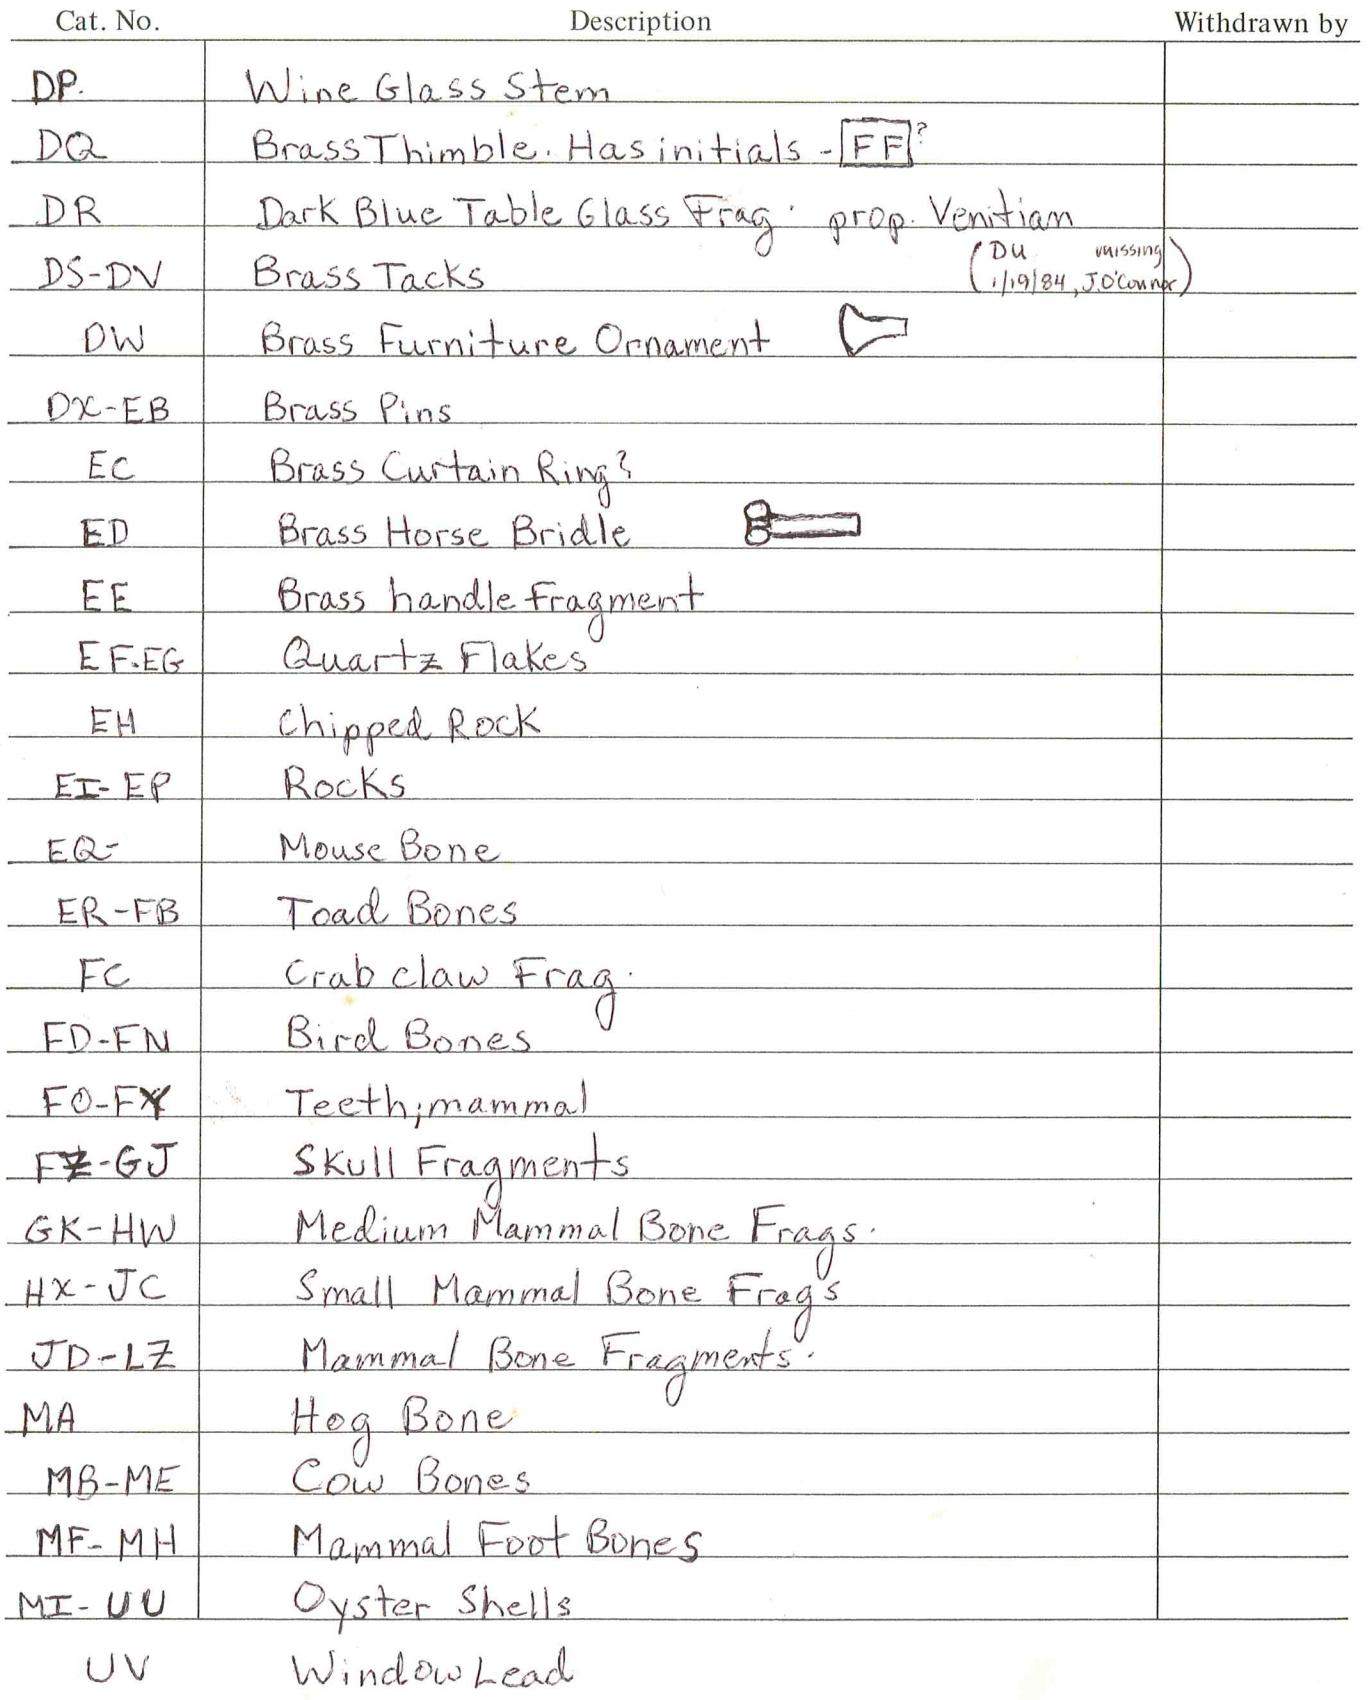 Cat. No. Description Withdrawn by
DP. Wine Glass Stem
DQ Brass Thimble. Has initials - FF ?
DR Dark Blue Table Glass Frag. prop. Venitian
DS-DV Brass Tacks (DU missing
1/19/84, J.O'Connor)
DW Brass Furniture Ornament
DX-EB Brass Pins
EC Brass Curtain Ring?
ED Brass Horse Bridle
EE Brass handle Fragment
EF-EG Quartz Flakes
EH Chipped Rock
EI-EP Rocks
EQ- Mouse Bone
ER-FB Toad Bones
FC Crab claw Frag.
FD-FN Bird Bones
FO-FY Teeth; mammal
FZ-GJ Skull Fragments
GK-HW Medium Mammal Bone Frags.
HX-JC Small Mammal Bone Frags
JD-LZ Mammal Bone Fragments.
MA Hog Bone
MB-ME Cow Bones
MF-MH Mammal Foot Bones
MI-UU Oyster Shells
UV Window Lead